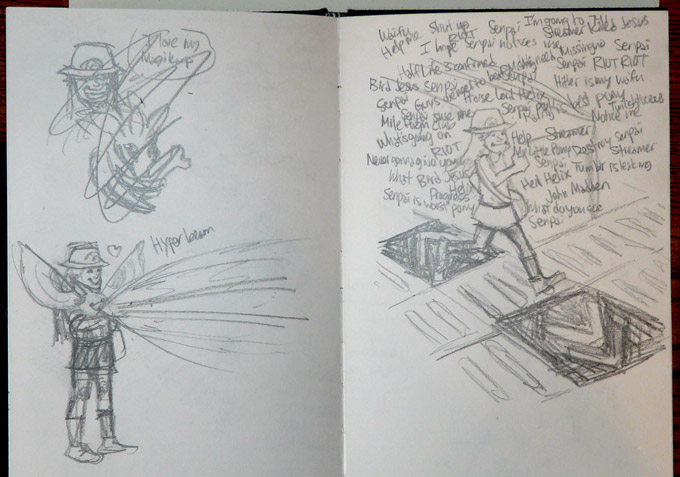 I love my
Magikarp
Hyperbeam
Waifu Shut up Senpai I'm going to Jesus
Help me RIOT Senpai Streamer
I hope Senpai notices me Missingno Senpai
Half Life 3 confirmed Senpai RIOT RIOT
Bird Jesus Senpai to be Senpai Hitler is my waifu
Senpai Guns Horse Lord Helix best pony
Senpai save me Senpai Notice me
Mile club
What's going on Help Streamer
RIOT My Little Pony Destiny Senpai
Never gonna give you up Senpai Streamer
What Bird Jesus Tumblr is leaking
Helix Heil Helix
Progress John Madden
Senpai is worst pony What do you see
Senpai